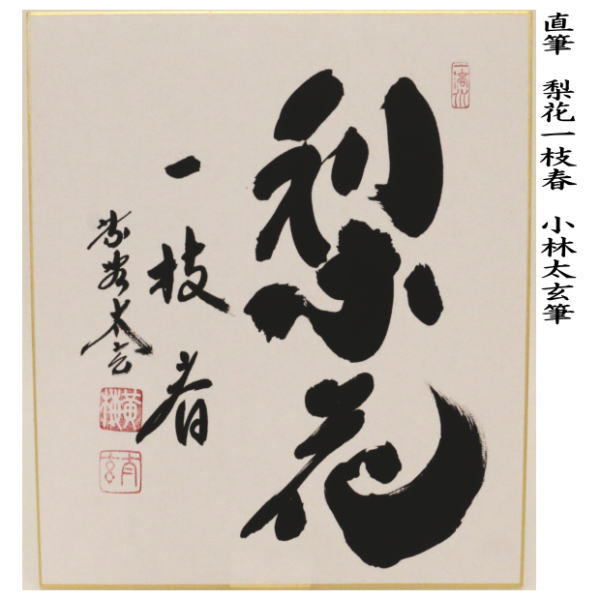 直筆 梨花一枝春 小林太玄筆
梨花
一枝春
紫野 太玄